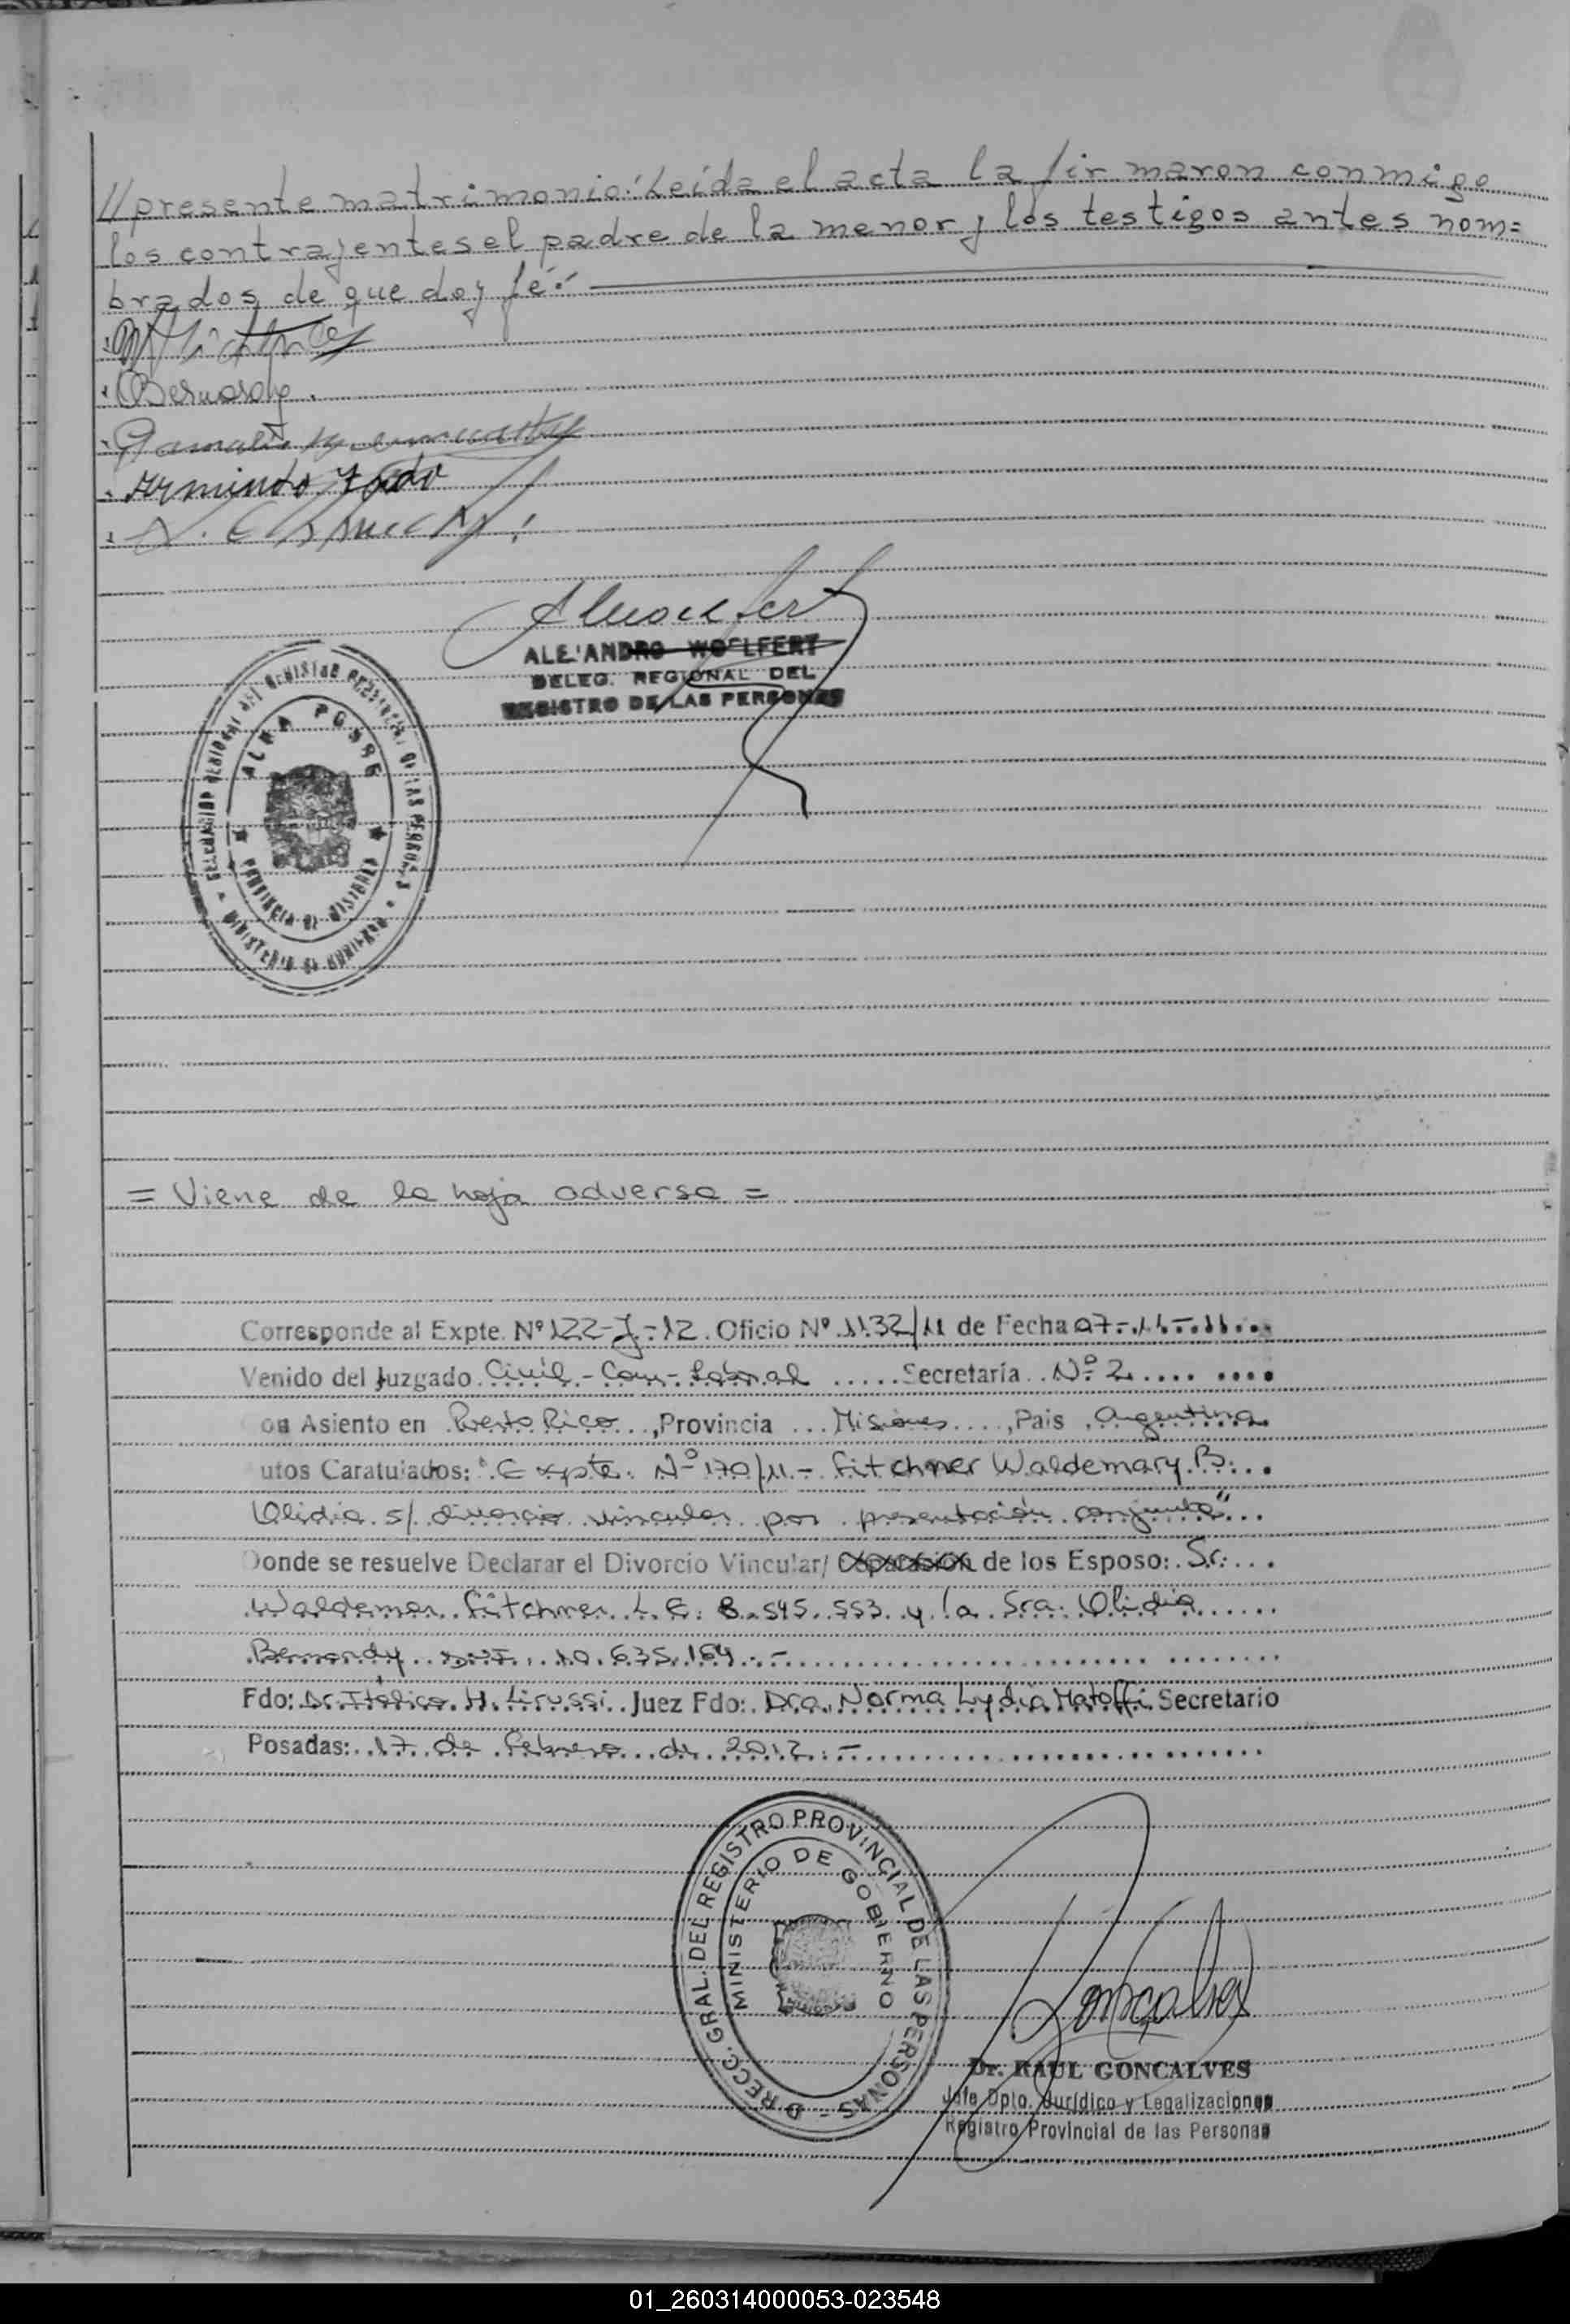 // presente matrimonio: Leída el acta la firmaron conmigo
los contrayentes el padre de la menor y los testigos antes nom=
brados de que doy fé:
Bernardy.
Armindo
ALEJANDRO WOELFERT
DELEG. REGIONAL DEL
REGISTRO DE LAS PERSONAS
DELEGACION REGIONAL DEL REGISTRO PROVINCIAL DE LAS PERSONAS
ALBA POSSE
PROVINCIA DE MISIONES
MINISTERIO DE GOBIERNO
= Viene de la hoja adversa =
Corresponde al Expte. Nº 122-J-12. Oficio Nº 1132/11 de Fecha 07-11-11
Venido del Juzgado Civil-Com-Laboral Secretaría Nº 2
on Asiento en Puerto Rico, Provincia Misiones, Pais Argentina
utos Caratulados: "Expte. Nº 170/11.- Fitchner Waldemar y B.
Olidia s/ divorcio vincular por presentación conjunta"
Donde se resuelve Declarar el Divorcio Vincular/ Separación de los Esposo: Sr.
Waldemar Fitchner L.E. 8.545.553 y la Sra. Olidia
Bernardy DNI. 10.635.164.-
Fdo: Dr. Italico H. Lirussi Juez Fdo: Dra. Norma Lydia Matoffi Secretario
Posadas: 17 de Febrero de 2012.-
DIRECC. GRAL. DEL REGISTRO PROVINCIAL DE LAS PERSONAS -
MINISTERIO DE GOBIERNO
MISIONES
Goncalves
Dr. RAUL GONCALVES
Jefe Dpto. Jurídico y Legalizaciones
Registro Provincial de las Personas
01_260314000053-023548